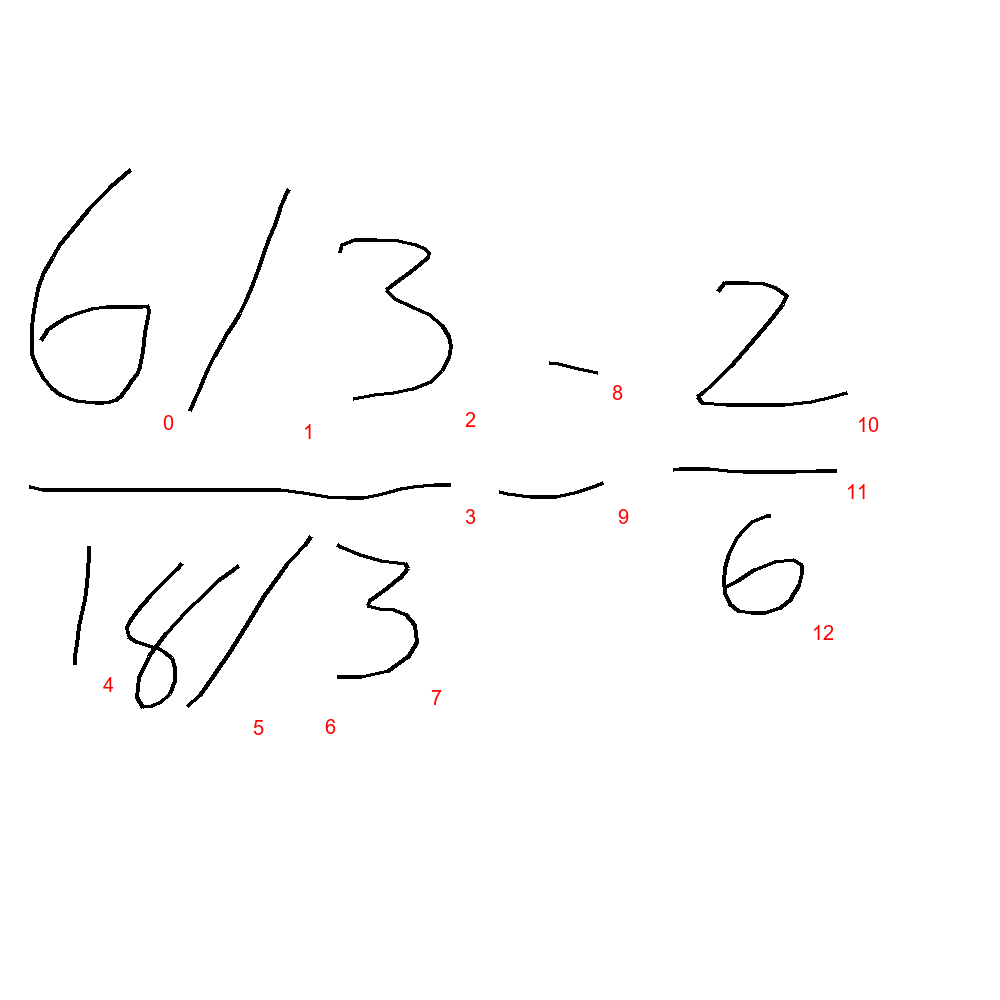 6/3 = 2
18/3 6
0 1 2 3 4 5 6 7 8 9 10 11 12